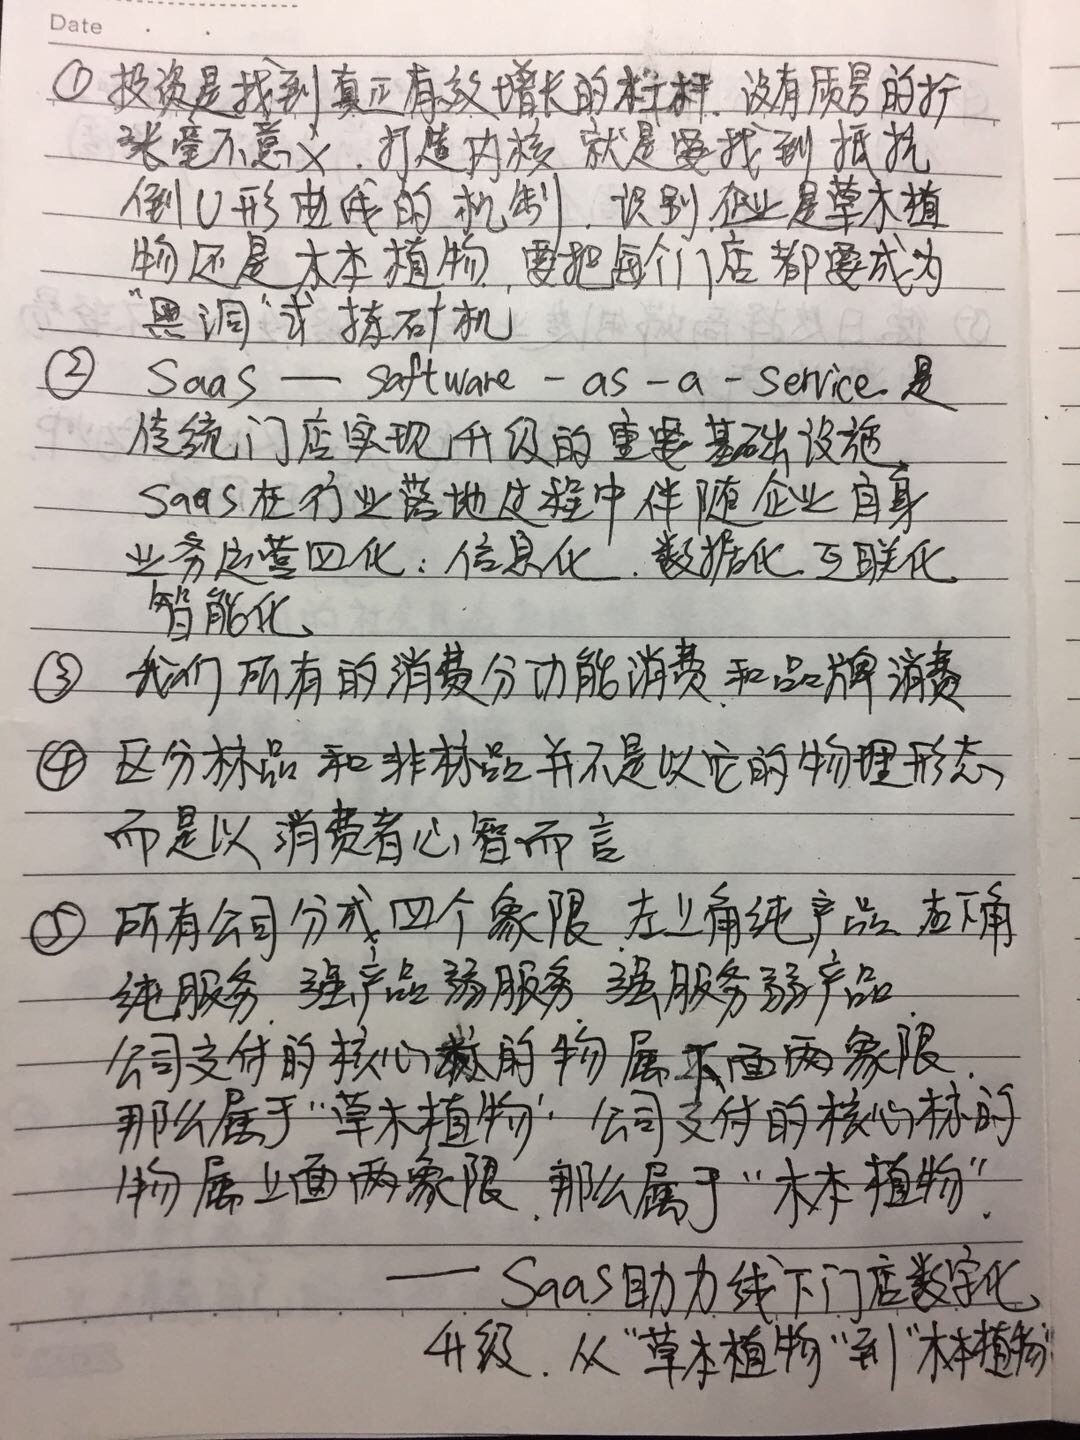 Date
① 投资是找到真正有效增长的标杆. 没有质量的扩
张毫不意义. 打造内核 就是要找到抵抗
倒U形曲线的机制. 识别企业是草木植
物还是木本植物, 要把每个门店都要成为
"黑洞"或挖矿机
② SaaS — Saftware - as - a - Service. 是
传统门店实现升级的重要基础设施
SaaS在行业落地过程中伴随企业自身
业务运营四化: 信息化. 数据化 互联化
智能化
③ 我们所有的消费分功能消费 和品牌消费
④ 区分标品和非标品并不是以它的物理形态,
而是以消费者心智而言
⑤ 所有公司分成四个象限 左上角纯产品 右下角
纯服务 强产品弱服务 强服务弱产品
公司交付的核心标的物属下面两象限.
那么属于"草木植物". 公司交付的核心标的
物属上面两象限. 那么属于"木本植物".
— SaaS助力线下门店数字化
升级. 从"草本植物"到"木本植物"